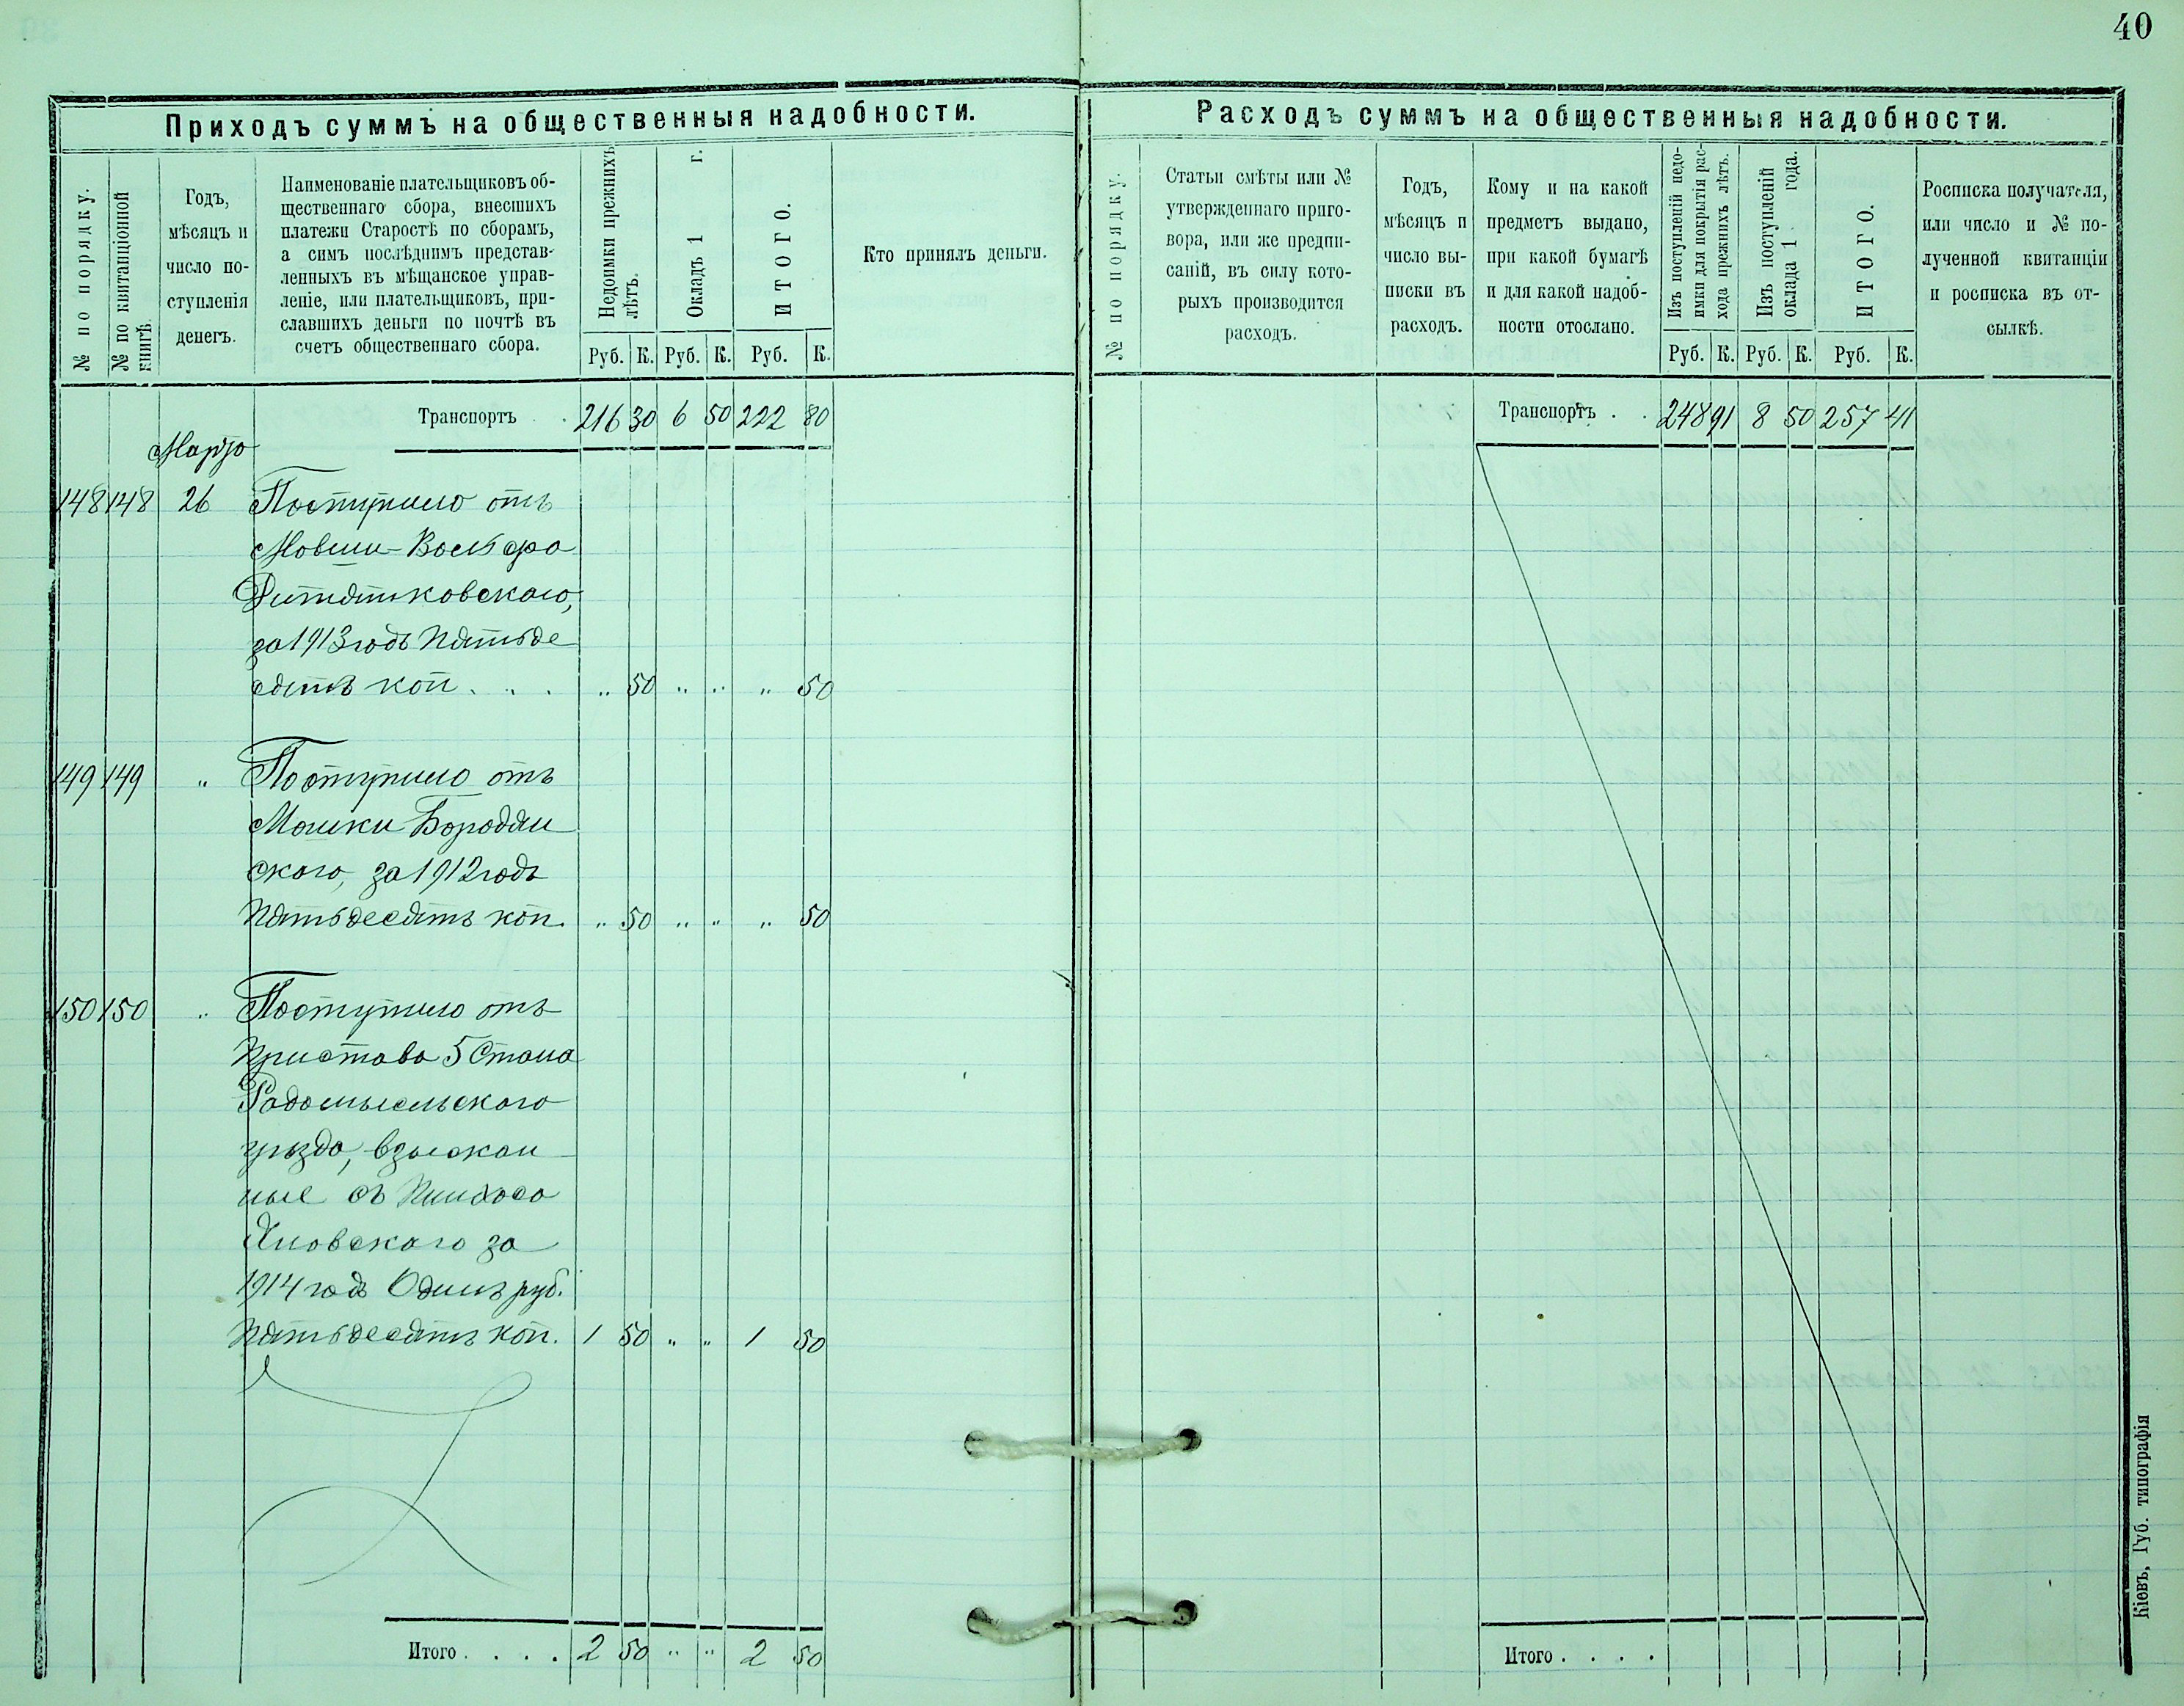 40
Приходъ суммъ на общественныя надобности.
№ по порядку.
№ по квитанціонной книгѣ.
Годъ,
мѣсяцъ и
число по-
ступленія
денегъ.
Наименованіе плательщиковъ об-
щественнаго сбора, внесшихъ
платежи Старостѣ по сборамъ,
а симъ послѣднимъ представ-
ленныхъ въ мѣщанское управ-
леніе, или плательщиковъ, при-
славшихъ деньги по почтѣ въ
счетъ общественнаго сбора.
Недоимки прежнихъ
лѣтъ.
Окладъ 1 г.
ИТОГО.
Руб. К. Руб. К. Руб. К.
Кто принялъ деньги.
Транспортъ . . 216 30 6 50 222 80
Марта
148 148 26 Поступило отъ
Мовши-Вольфа
Дитятковскаго,
за 1913 годъ Пятьде
сятъ коп. . . „ 50 „ „ „ 50
149 149 „ Поступило отъ
Мошки Бородян
скаго, за 1912 годъ
Пятьдесятъ коп. „ 50 „ „ „ 50
150 150 „ Поступило отъ
Пристава 5 Стана
Радомысльскаго
уѣзда, взыскан
ные съ Пинхаса
Яновскаго за
1914 годъ Одинъ руб.
Пятьдесятъ коп. 1 50 „ „ 1 50
Итого . . . . 2 50 „ „ 2 50
Расходъ суммъ на общественныя надобности.
№ по порядку.
Статьи смѣты или №
утвержденнаго приго-
вора, или же предпи-
саній, въ силу кото-
рыхъ производится
расходъ.
Годъ,
мѣсяцъ и
число вы-
писки въ
расходъ.
Кому и на какой
предметъ выдано,
при какой бумагѣ
и для какой надоб-
ности отослано.
Изъ поступленій недо-
имки для покрытія рас-
хода прежнихъ лѣтъ.
Изъ поступленій
оклада 1 года.
ИТОГО.
Руб. К. Руб. К. Руб. К.
Росписка получателя,
или число и № по-
лученной квитанціи
и росписка въ от-
сылкѣ.
Транспортъ . . 248 91 8 50 257 41
Итого . . . .
Кіевъ, Губ. типографія